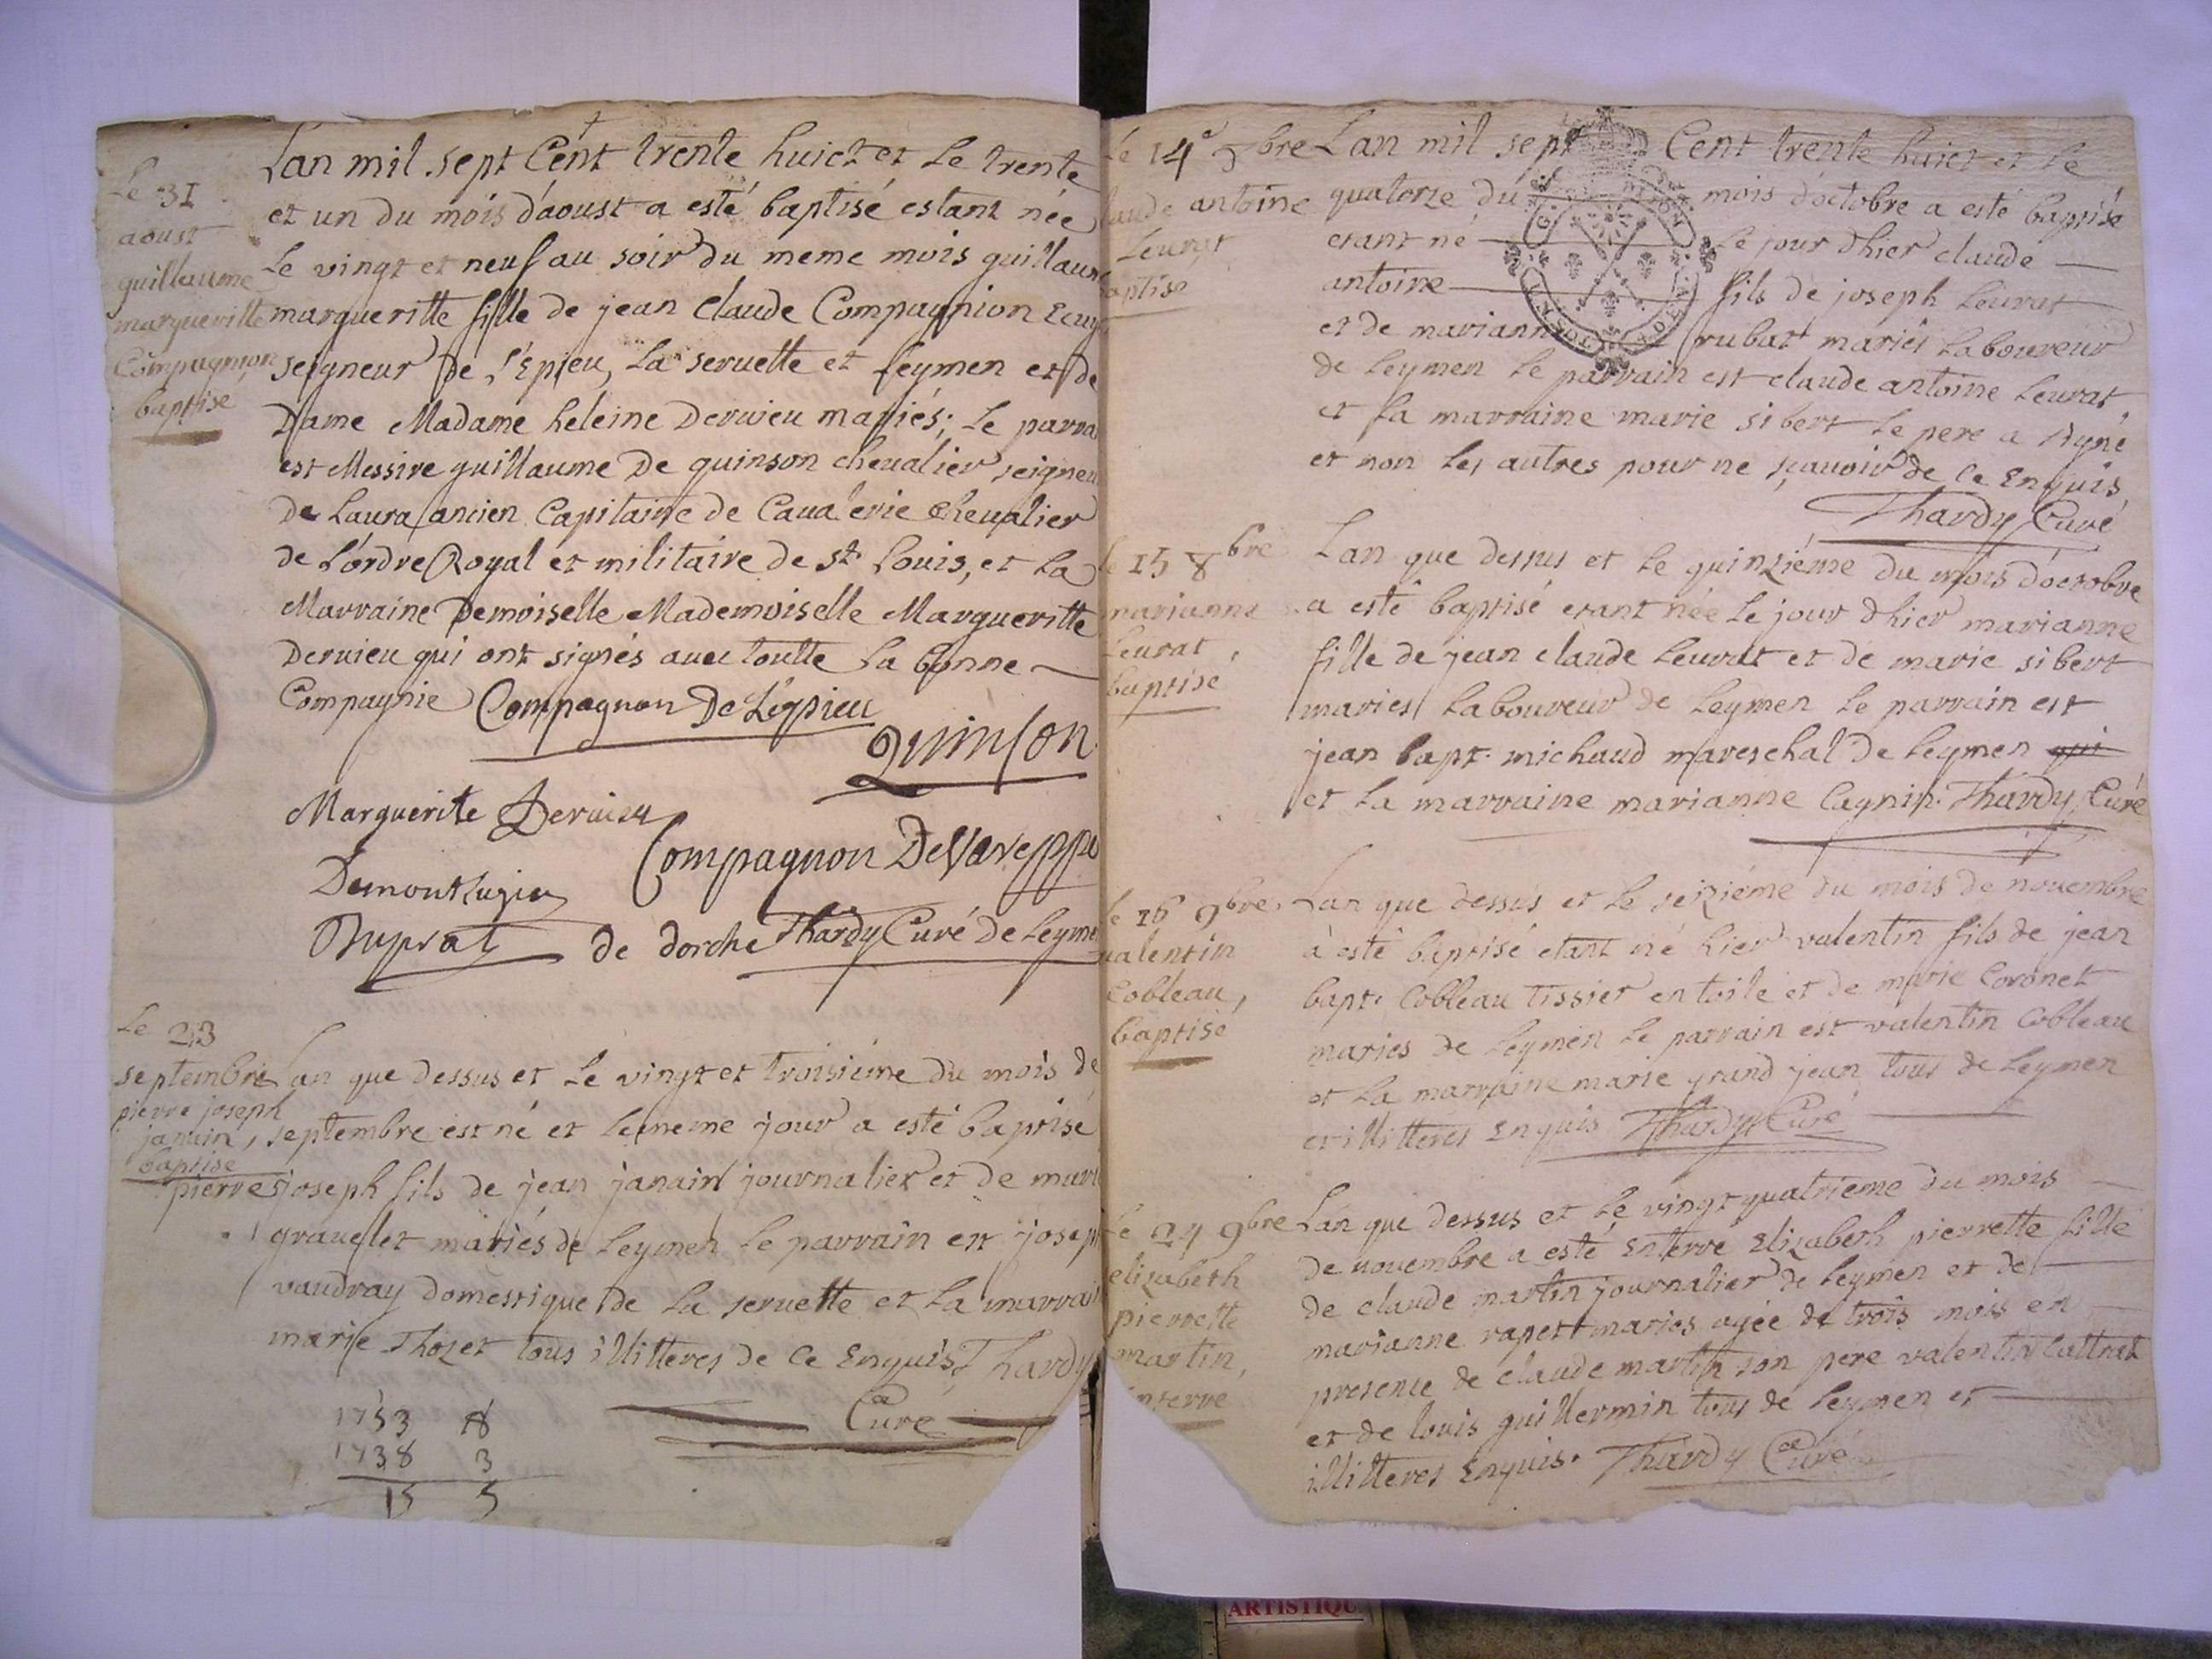 Le 31
aoust
guillaume
margueritte
Compagnion
baptise
L'an mil sept Cent trente huict et le trente
et un du mois d'aoust a esté baptisé estant née
le vingt et neuf au soir du meme mois guillaume
margueritte fille de jean Claude Compagnion Ecuy
seigneur de l'Epieu, la seruette et leymen et de
Dame Madame heleine Dervieu mariés; le parra
est Messire guillaume De quinson chevalier seigneu
de Laura ancien Capitaine de Caualerie Chevalier
de L'ordre Royal et militaire de St Louis, et la
Marraine Demoiselle Mademoiselle Margueritte
Dervieu qui ont signés avec toutte la bonne
Compagnie Compagnon De Lépieu
quinson
Marguerite Dervieu
Compagnon De Vareppe
Demontluzin
Duprat de dorche Thardy Curé de Leyme
Le 23
septembre
pierre joseph
janain,
baptise
Lan que dessus et le vingt et troisième du mois de
septembre est né et le meme jour a esté baptisé
pierre joseph fils de jean janain journalier et de mari
grauelet mariés de leymen le parrain est josep
vaudray domestique de la seruette et la marrai
marie Thozet tous illitteres de ce Enquis, Thardy
Curé
1753 8
1738 3
15 5
Le 14e 8bre
laude antoine
Leurat
aptise
Lan mil sept Cent trente huict et le
quatorze du mois d'octobre a esté baptisé
etant né le jour d'hier claude
antoine fils de joseph Leurat
et de marianne rubat mariés laboureur
de leymen le parrain est claude antoine Leurat
et la marraine marie sibert le pere a signé
et non les autres pour ne sçauoir de ce Enquis
Thardy Curé
le 15 8bre
marianne
Leurat,
baptisé
Lan que dessus et le quinziéme du mois d'octobre
a esté baptisé etant née le jour d'hier marianne
fille de jean claude Leurat et de marie sibert
mariés laboureur de leymen le parrain est
jean bapt. michaud mareschal de leymen qui
et la marraine marianne Cagnin. Thardy Curé
le 16 9bre
valentin
Cobleau,
baptisé
Lan que dessus et le seiziéme du mois de novembre
à esté baptisé etant né hier valentin fils de jean
bapt. Cobleau tissier en toile et de marie Coronet
mariés de leymen le parrain est valentin Cobleau
et la marraine marie grand jean tous de leymen
et illitteres Enquis Thardy Curé
Le 24 9bre
elizabeth
pierrette
martin,
enterre
Lan que dessus et le vingt quatrieme du mois
de novembre a esté Enterré Elizabeth pierrette fille
de claude martin journalier de leymen et de
marianne rapet mariés agée de trois mois en
presence de claude martin son pere valentin
et de louis guillermin tous de leymen et
illitteres Enquis. Thardy Curé
ARTISTIQU